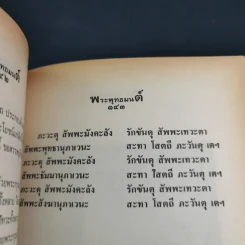 พระพุทธมนต์
๑๔๓
ภะวะตุ สัพพะมังคะลัง รักขันตุ สัพพะเทวะตา
สัพพะพุทธานุภาเวนะ สะทา โสตถี ภะวันตุ เตฯ
ภะวะตุ สัพพะมังคะลัง รักขันตุ สัพพะเทวะตา
สัพพะธัมมานุภาเวนะ สะทา โสตถี ภะวันตุ เตฯ
ภะวะตุ สัพพะมังคะลัง รักขันตุ สัพพะเทวะตา
สัพพะสังฆานุภาเวนะ สะทา โสตถี ภะวันตุ เตฯ